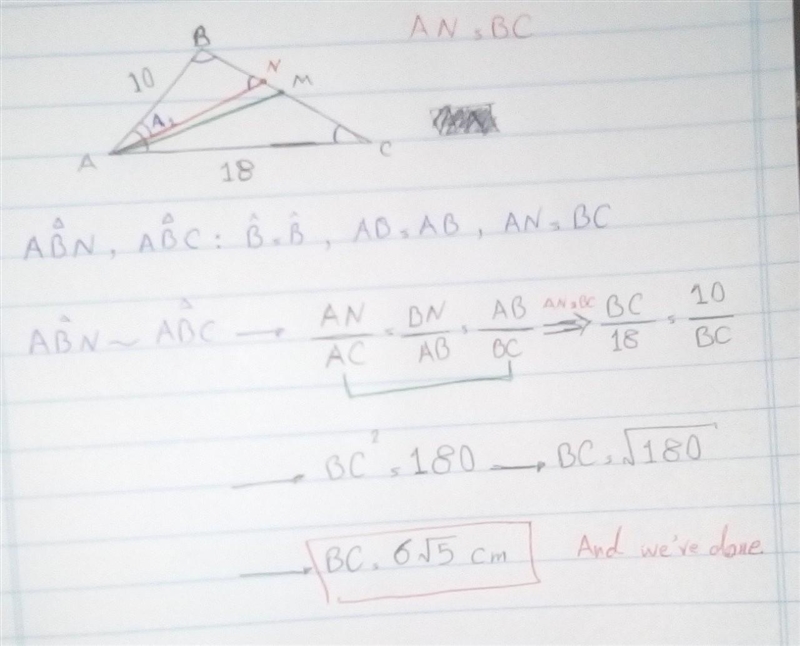 AN = BC
B
N
10
M
A₁
A
C
18
AB̂N, AB̂C: B̂ = B̂, AB = AB, AN = BC
AB̂N ~ AB̂C → AN/AC = BN/AB = AB/BC AN=BC ⇒ BC/18 = 10/BC
→ BC² = 180 → BC = √180
→ BC = 6√5 cm And we've done